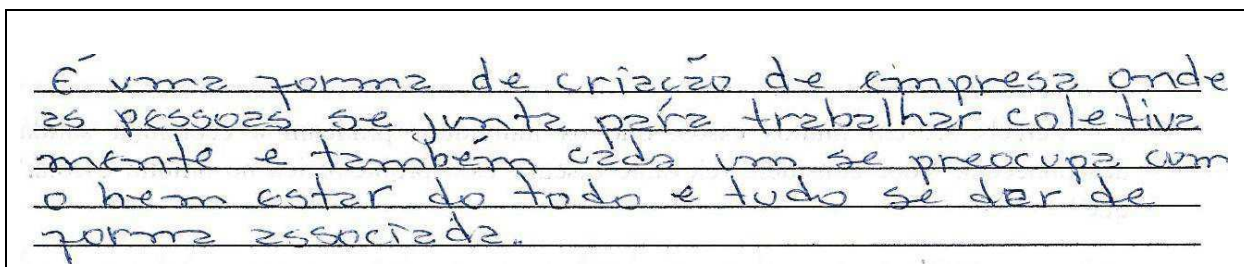 É uma forma de criação de empresa onde
as pessoas se junta para trabalhar coletiva
mente e também cada um se preocupa com
o bem estar do todo e tudo se dar de
forma associada.